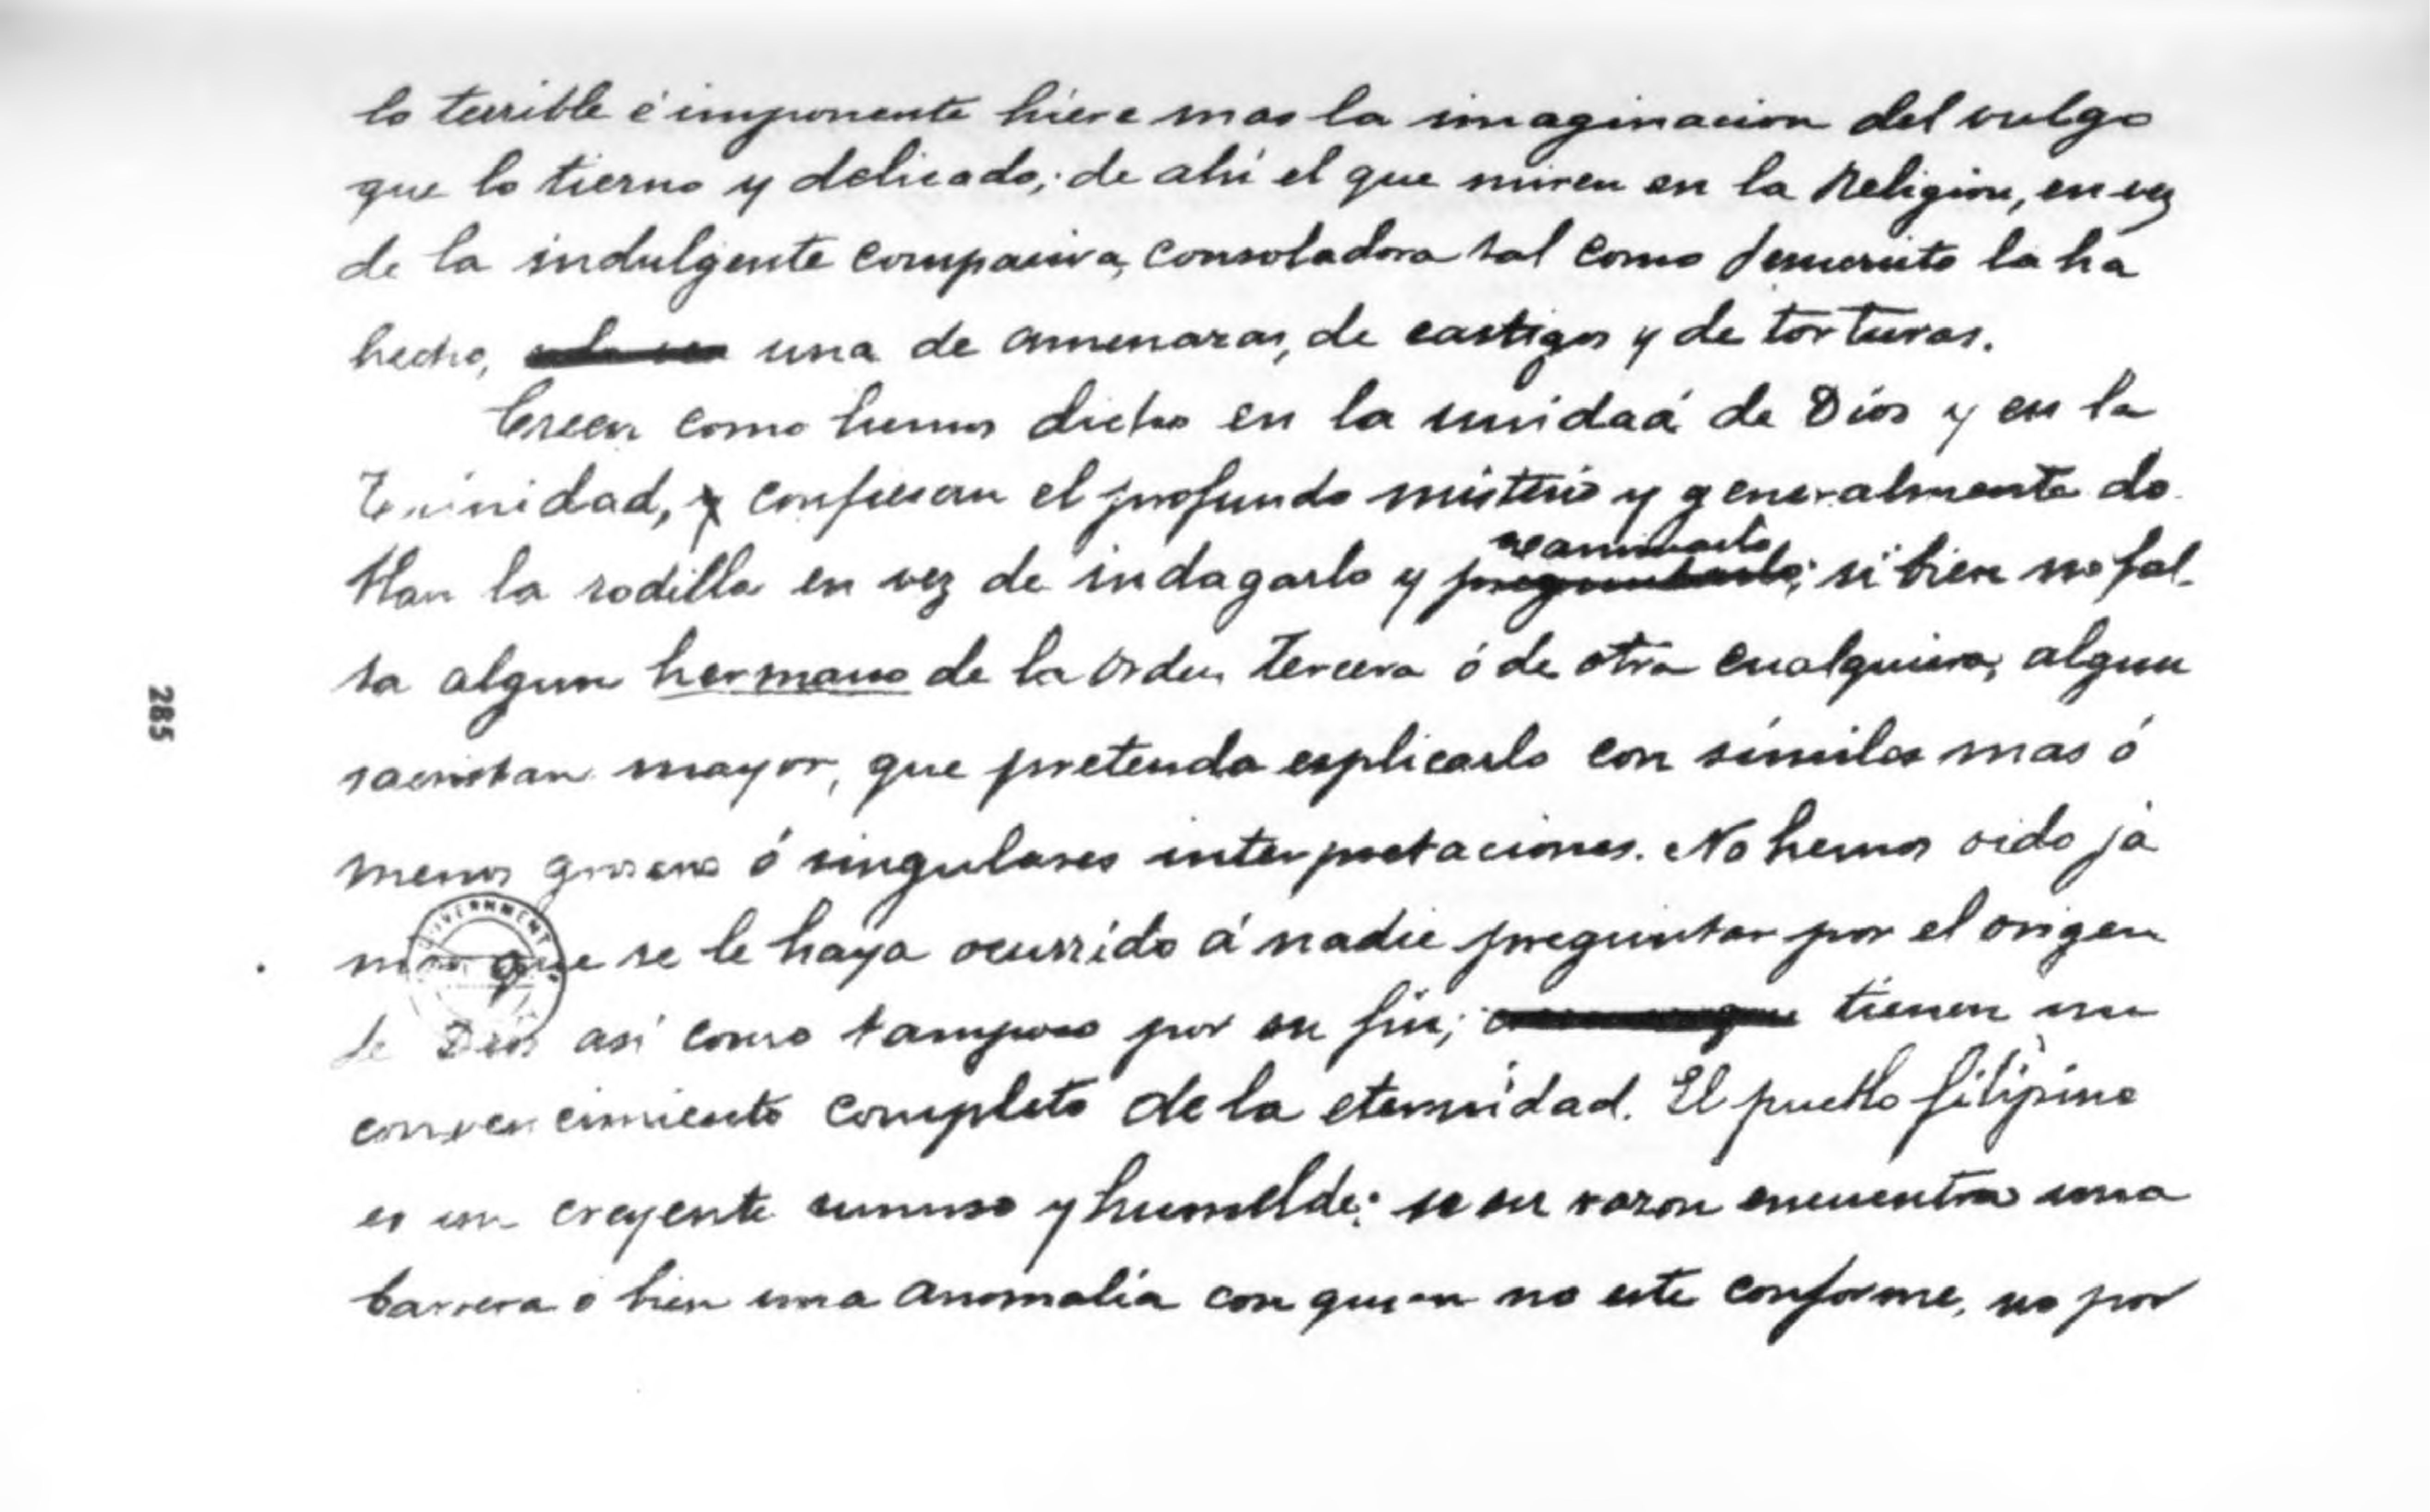 lo terrible é imponente hiere mas la imaginacion del vulgo
que lo tierno y delicado; de ahí el que miren en la Religion, en vez
de la indulgente compasiva, consoladora tal como Jesucristo la ha
hecho, una de amenazas, de castigos y de torturas.
Creen como hemos dicho en la unidad de Dios y en la
Trinidad, y confiesan el profundo misterio y generalmente do
blan la rodilla en vez de indagarlo y
examinarlo
preguntarlo; si bien no fal-
ta algun hermano de la Orden Tercera ó de otra cualquiera, algun
sacristan mayor, que pretenda esplicarlo con símiles mas ó
menos groseros ó singulares interpretaciones. No hemos oido ja
mas que se le haya ocurrido á nadie preguntar por el origen
de Dios así como tampoco por su fin; tienen un
convencimiento completo de la eternidad. El pueblo filipino
es un creyente sumiso y humilde: si su razon encuentra una
barrera o bien una anomalía con quien no esté conforme, no por
GOVERNMENT
285